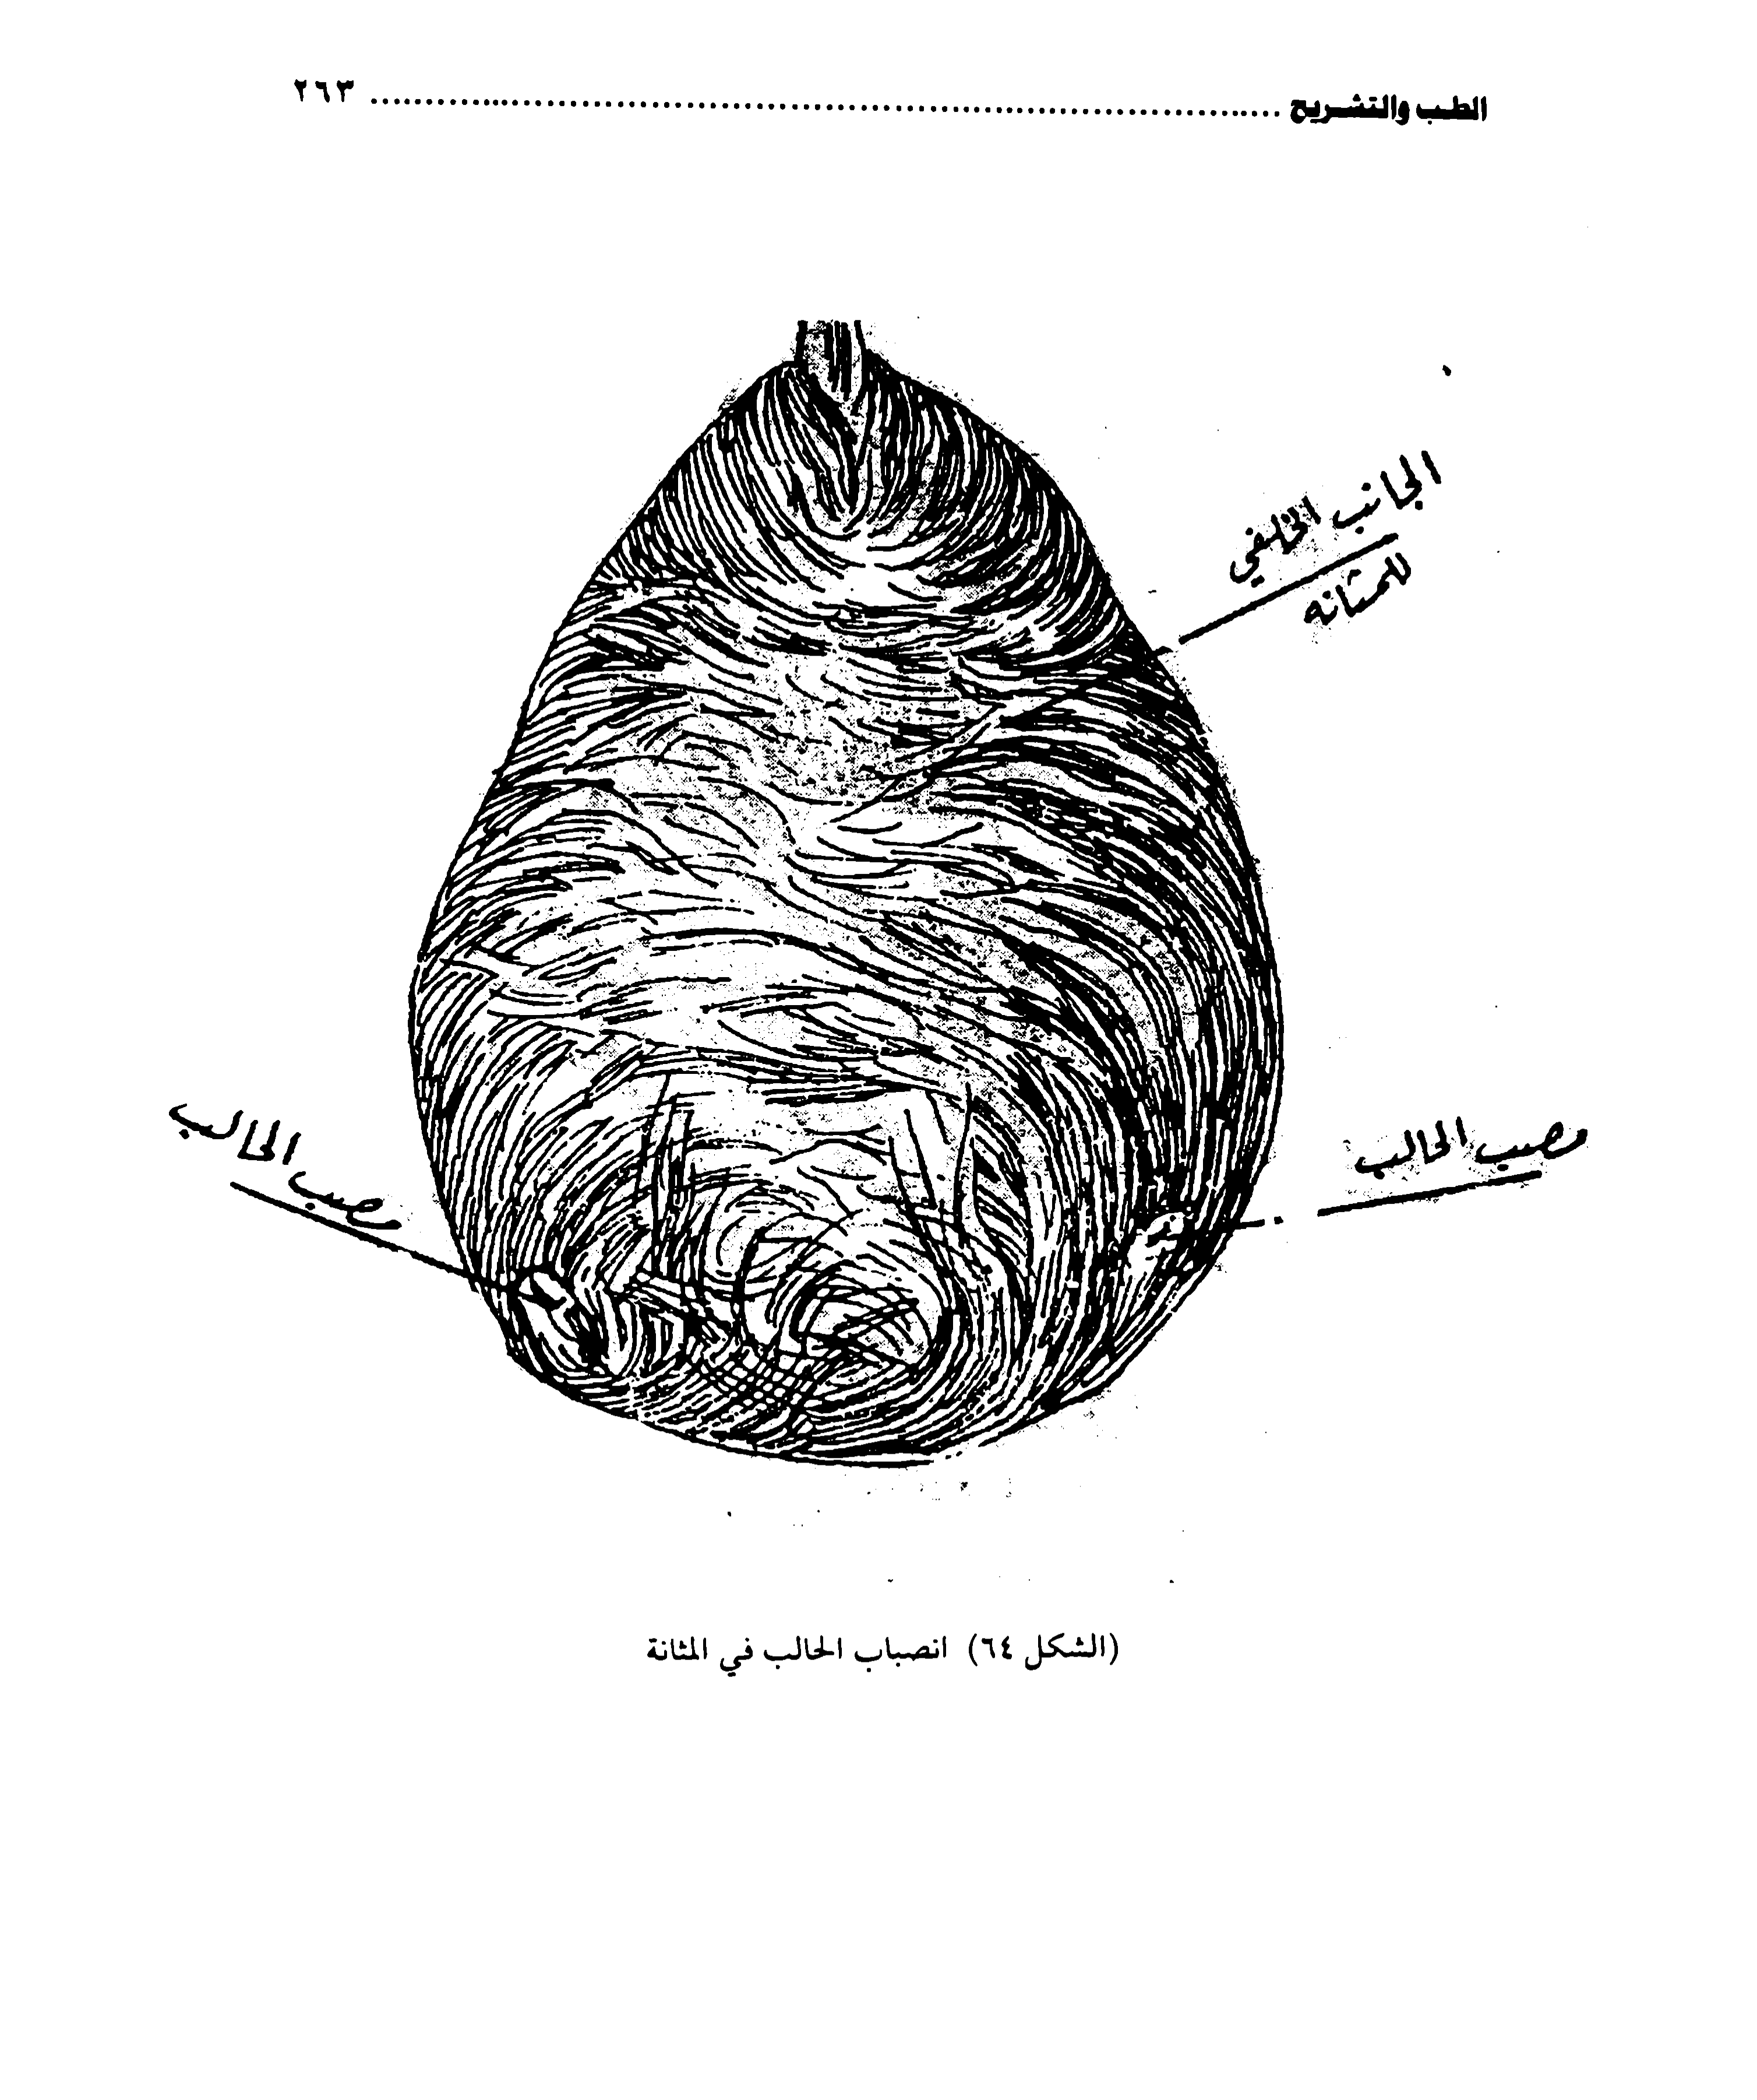 الطب والتشريح ........................................................ ٢٦٣
الجانب الخلفي
للمثانه
مصب الحالب
مصب الحالب
(الشكل ٦٤) انصباب الحالب في المثانة